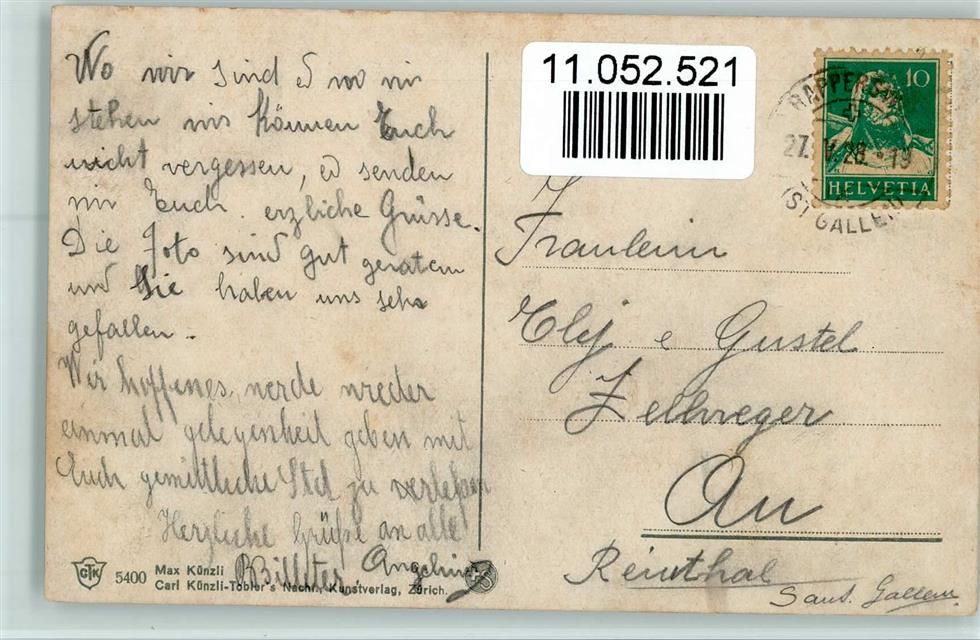 Wo wir sind & wo wir
stehen wir können Euch
nicht vergessen, & senden
wir Euch erzliche Grüsse.
Die Foto sind gut geraten
und Sie haben uns sehr
gefallen.
Wir hoffen es, werde wieder
einmal gelegenheit geben mit
Euch gemittliche Std zu verleßen
Herzliche Grüße an alle
Angelina
CTK
5400 Max Künzli
Carl Künzli-Tobler's Nachf., Kunstverlag, Zürich.
11.052.521
10
HELVETIA
RAPPERSWIL
27.IV.28.-19
(ST GALLEN)
Fraulein
e Gustel
Zellweger
Au
Reinthal
Sant. Gallen